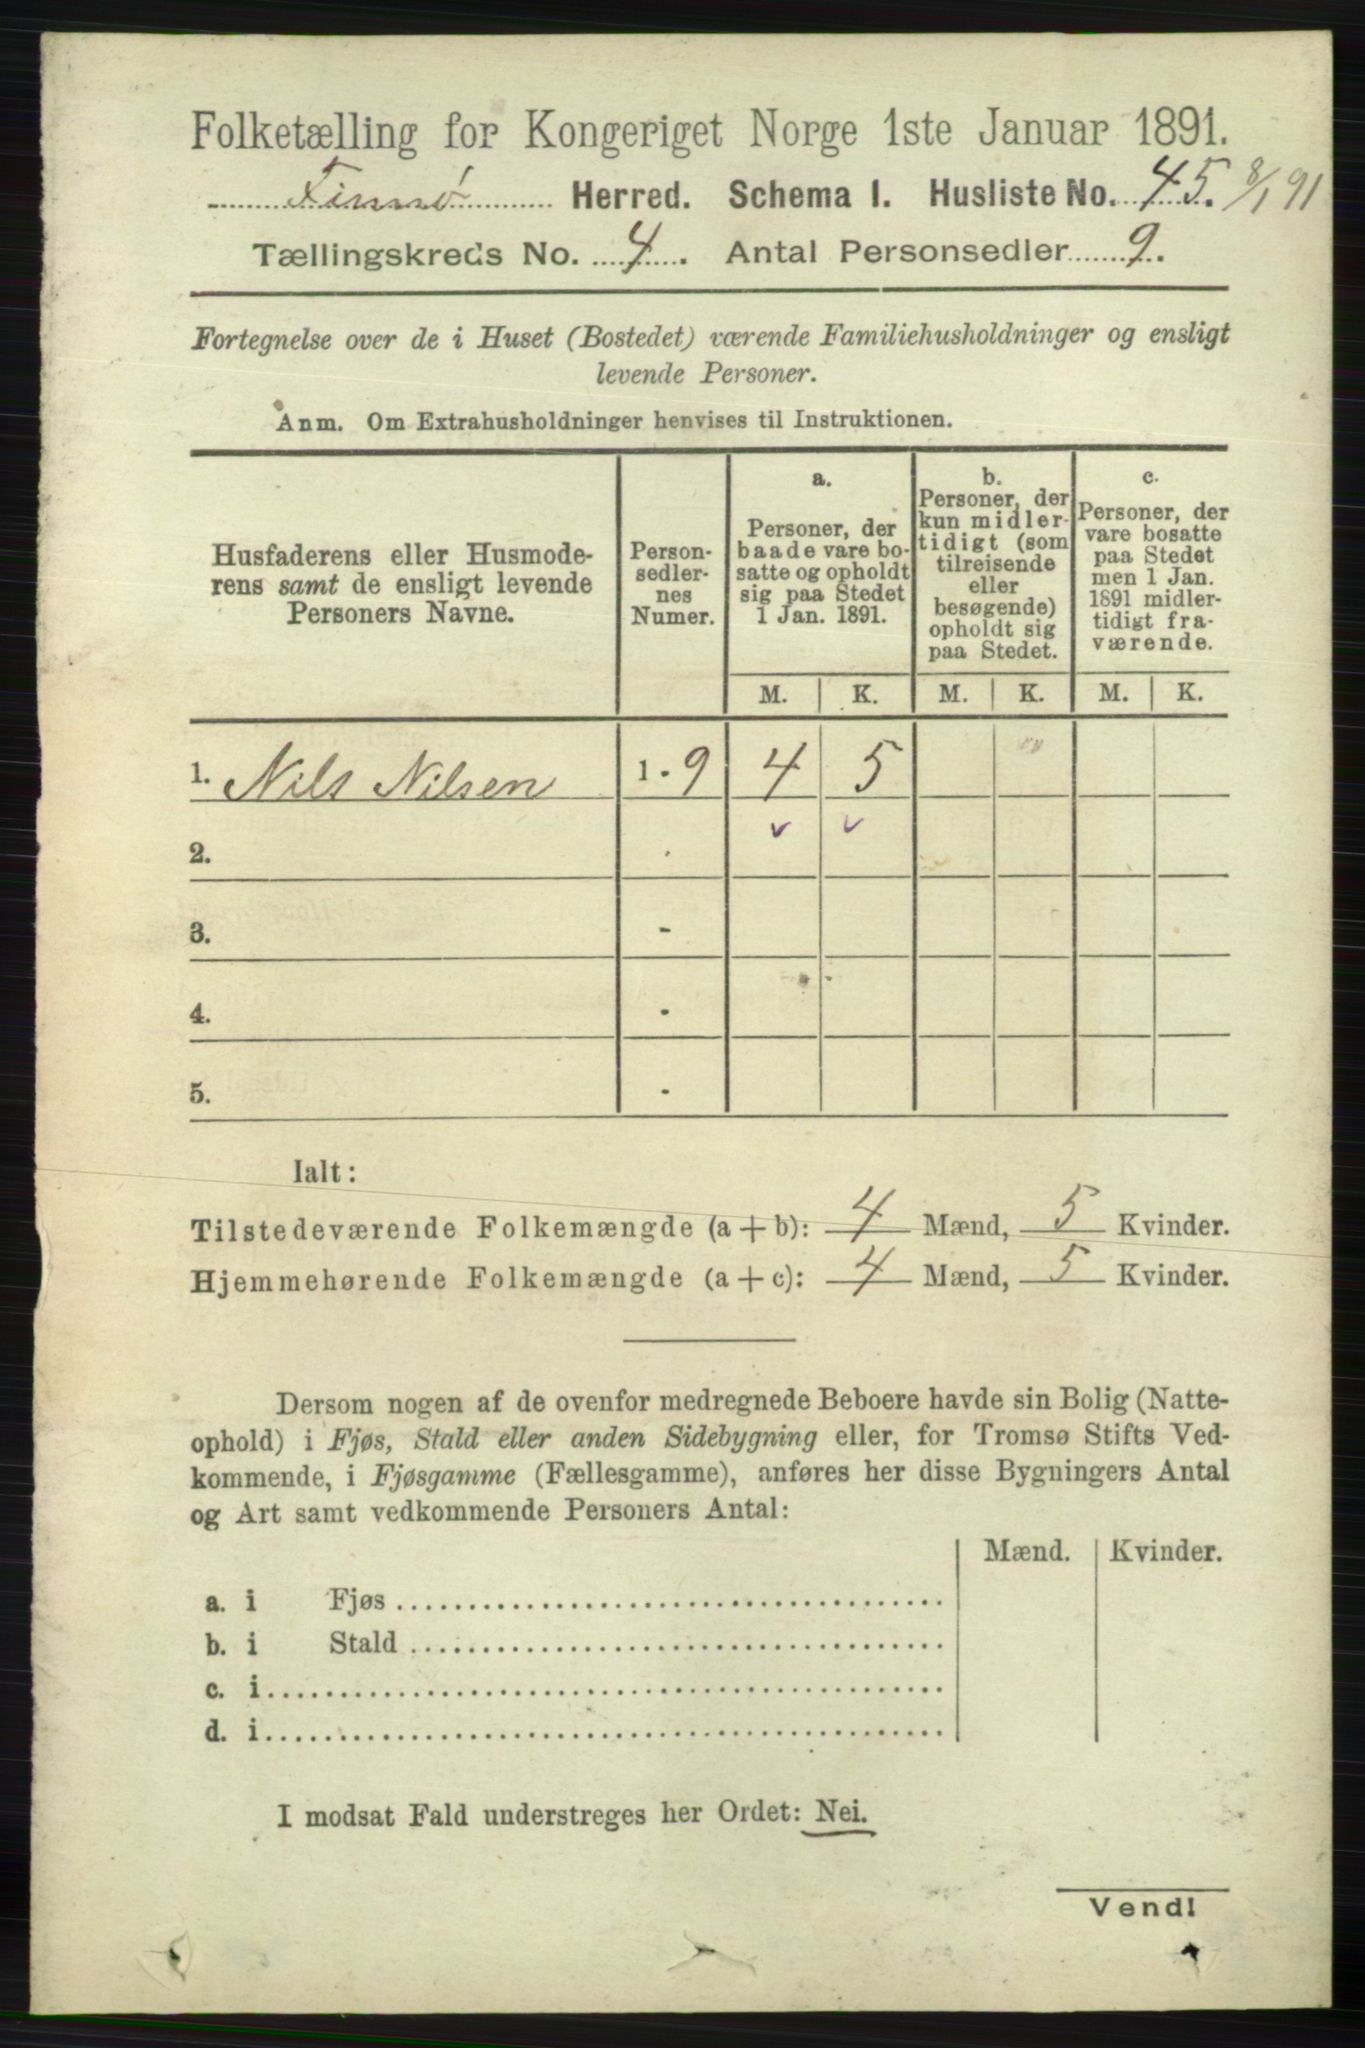 Folketælling for Kongeriget Norge 1ste Januar 1891.
Finnø Herred. Schema I. Husliste No. 45. 8/1 91
Tællingskreds No. 4. Antal Personsedler 9.
Fortegnelse over de i Huset (Bostedet) værende Familiehusholdninger og ensligt
levende Personer.
Anm. Om Extrahusholdninger henvises til Instruktionen.
Husfaderens eller Husmode-
rens samt de ensligt levende
Personers Navne.
Person-
sedler-
nes
Numer.
a.
Personer, der
baade vare bo-
satte og opholdt
sig paa Stedet
1 Jan. 1891.
b.
Personer, der
kun midler-
tidigt (som
tilreisende
eller
besøgende)
opholdt sig
paa Stedet.
c.
Personer, der
vare bosatte
paa Stedet
men 1 Jan.
1891 midler-
tidigt fra-
værende.
M. K. M. K. M. K.
1. Nils Nilsen 1 - 9 4 5
2.
3. -
4. -
5. -
Ialt:
Tilstedeværende Folkemængde (a + b): 4 Mænd, 5 Kvinder.
Hjemmehørende Folkemængde (a + c): 4 Mænd, 5 Kvinder.
Dersom nogen af de ovenfor medregnede Beboere havde sin Bolig (Natte-
ophold) i Fjøs, Stald eller anden Sidebygning eller, for Tromsø Stifts Ved-
kommende, i Fjøsgamme (Fællesgamme), anføres her disse Bygningers Antal
og Art samt vedkommende Personers Antal:
Mænd. Kvinder.
a. i Fjøs
b. i Stald
c. i
d. i
I modsat Fald understreges her Ordet: Nei.
Vend!